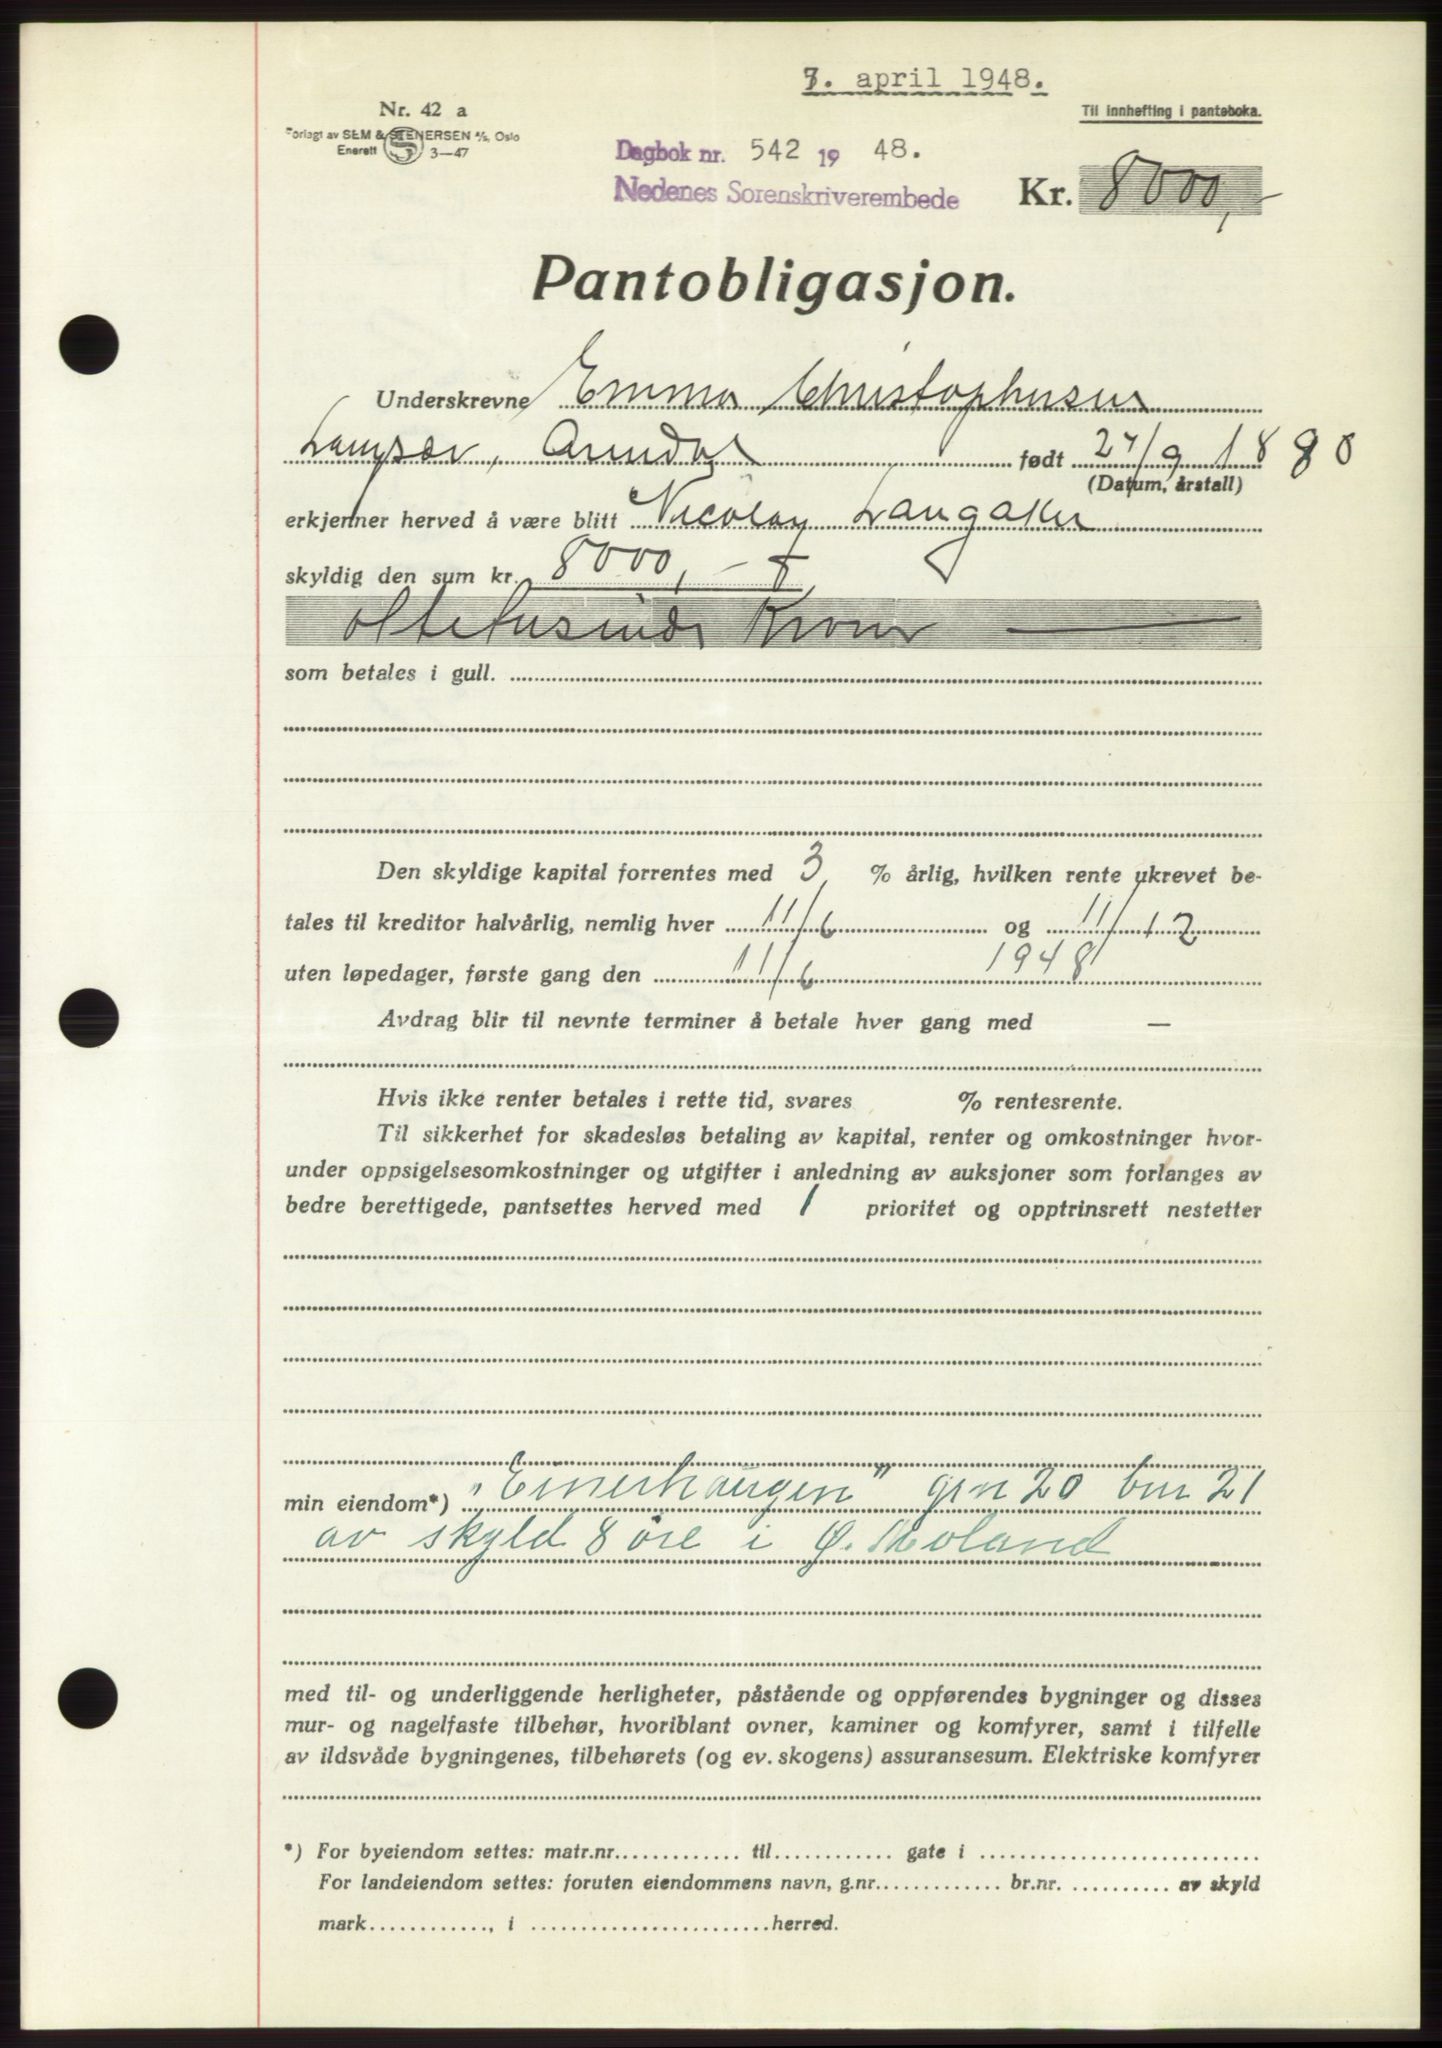 7. april 1948.
Nr. 42 a
Til innhefting i panteboka.
Forlagt av SEM & STENERSEN A/S, Oslo
Enerett S 3—47
Dagbok nr. 542 19 48.
Nedenes Sorenskriverembede
Kr. 8000,-
Pantobligasjon.
Underskrevne Emma Christophersen
Langsæ, Arendal født 27/9 1880
(Datum, årstall)
erkjenner herved å være blitt Nicolay Langaker
skyldig den sum kr. 8000,-
ottetusinde Kroner
som betales i gull.
Den skyldige kapital forrentes med 3 % årlig, hvilken rente ukrevet be-
tales til kreditor halvårlig, nemlig hver 11/6 og 11/12
uten løpedager, første gang den 11/6 1948
Avdrag blir til nevnte terminer å betale hver gang med —
Hvis ikke renter betales i rette tid, svares % rentesrente.
Til sikkerhet for skadesløs betaling av kapital, renter og omkostninger hvor-
under oppsigelsesomkostninger og utgifter i anledning av auksjoner som forlanges av
bedre berettigede, pantsettes herved med 1 prioritet og opptrinsrett nestetter
min eiendom*) "Einerhaugen" grn 20 bnr 21
av skyld 8 øre i Ø. Moland
med til- og underliggende herligheter, påstående og oppførendes bygninger og disses
mur- og nagelfaste tilbehør, hvoriblant ovner, kaminer og komfyrer, samt i tilfelle
av ildsvåde bygningenes, tilbehørets (og ev. skogens) assuransesum. Elektriske komfyrer
*) For byeiendom settes: matr.nr. til gate i
For landeiendom settes: foruten eiendommens navn, g.nr. br.nr. av skyld
mark , i herred.